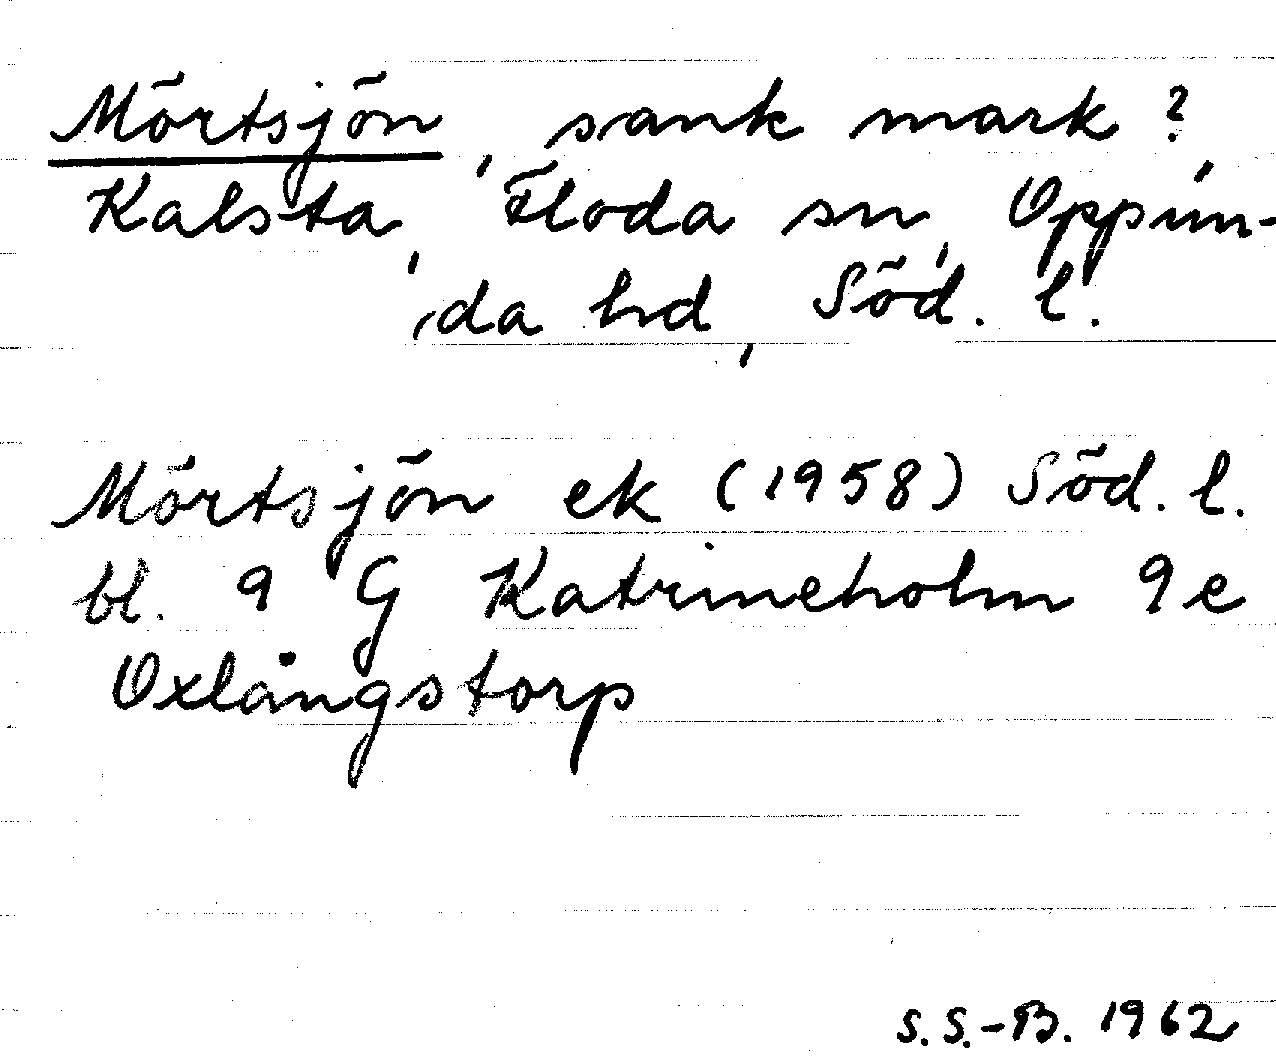 Mörtsjön, sank mark?
Kalsta, Floda sn, Oppun-
da hd, Söd. l.
Mörtsjön ek (1958) Söd. l.
bl. 9 G Katrineholm 9e
Oxlångstorp
S.S.-B. 1962